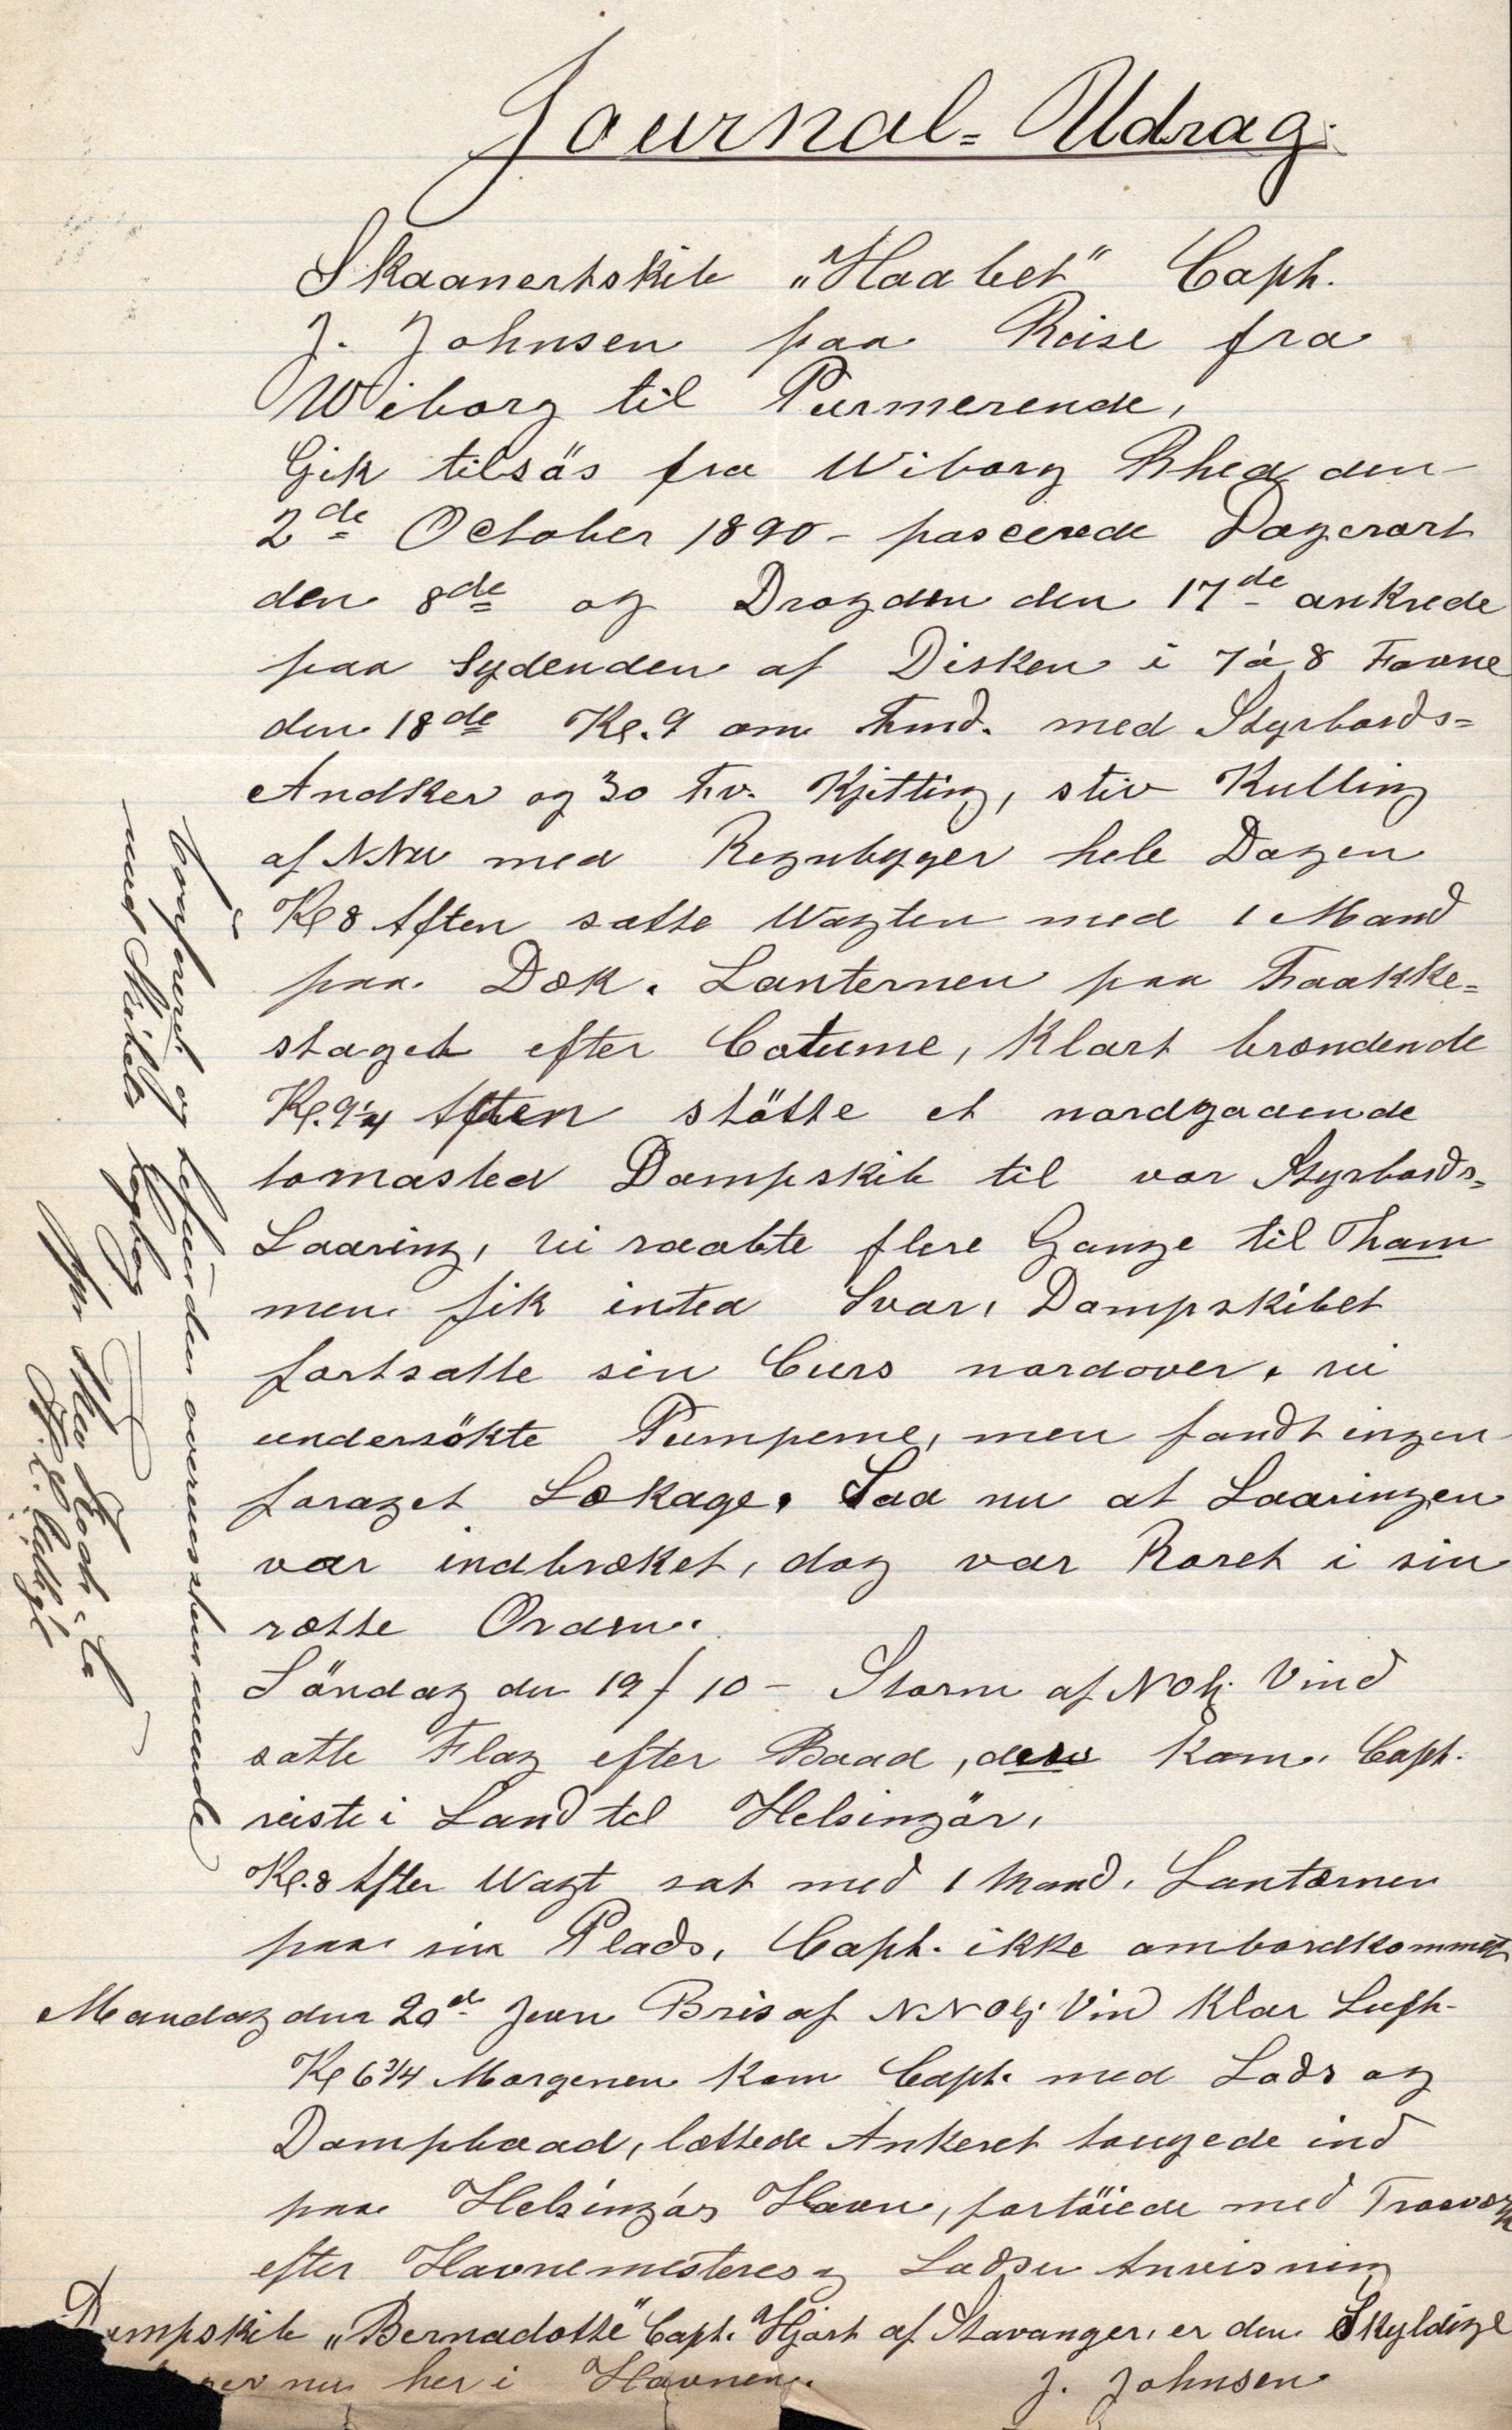 Journal-Udrag.
Skaanertskib „Haabet" Capt.
J. Johnsen paa Reise fra
Wiborg til Purmerende,
Gik tilsös fra Wiborg Rhed den
2de October 1890 - passerede Dagerort
den 8de og Drogden den 17de ankrede
paa Sydenden af Disken i 7 à 8 Favne
den 18de Kl. 9 om Fmd. med Styrbords-
Andker og 30 Fv. Kjitting, stiv Kulling
af NNW med Regnbyger hele Dagen
Kl 8 Aften satte Wagten med 1 Mand
paa Dæk. Lanternen paa Faakke-
staget efter Cotume, Klart brændende
Kl. 9 1/4 Aften stötte et nordgaaende
tomasted Dampskib til vor Styrbords-
Laaring, vi raabte flere Gange til Tham
men fik inted Svar, Dampskibet
fortsatte sin Curs nordover, vi
undersökte Pumperne, men fandt ingen
foröget Lækage. Saa nu at Laaringen
var indbræket, dog var Roret i sin
rætte Orden.
Söndag den 19/10 - Storm af NOlj. Vind
satte Flag efter Baad, den Kom. Capt.
reiste i Land til Helsingör,
Kl. 8 Aften Wagt sat med 1 Mand. Lantærnen
paa sin Plads, Capt. ikke ombordkommet
Mandag den 20de Jevn Bris af NNOlj Vind Klar Luft
Kl 6 3/4 Morgenen Kom Capt. med Lods og
Dampbaad, lættede Ankeret bougede ind
paa Helsingörs Havn, fortöiede med
efter Havnemesteres og Lodsen Anvisning
Dampskib „Bernadotte" Capt. Hjort af Stavanger, er den Skyldige
nu her i Havnen. J. Johnsen
Confereret og befunden overensstemmende
med Skibets Logbog